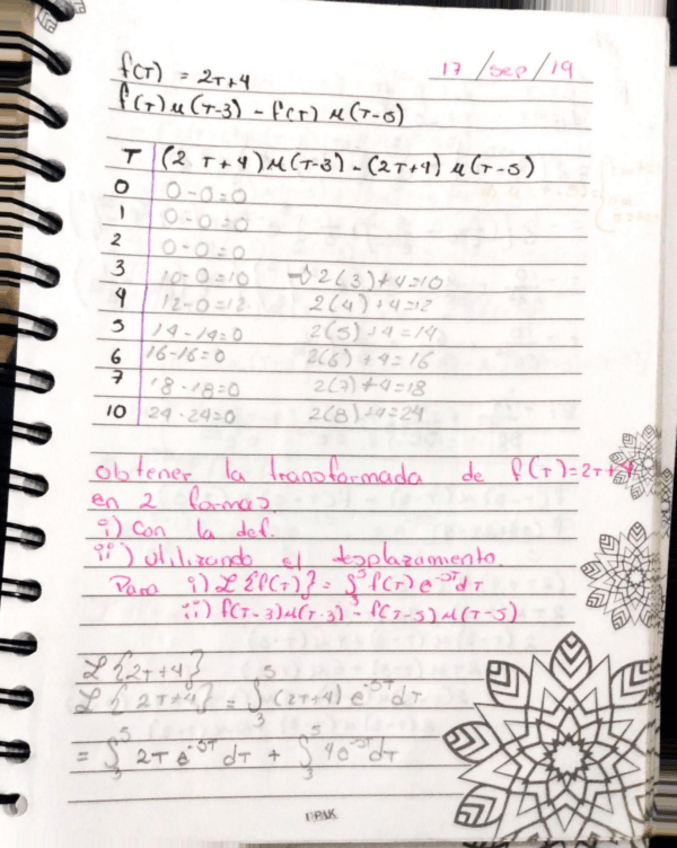 17 / sep / 19
f(T) = 2T+4
f(T) μ(T-3) - f(T) μ(T-5)
T (2T+4) μ(T-3) - (2T+4) μ(T-5)
0 0-0=0
1 0-0=0
2 0-0=0
3 10-0=10 → 2(3)+4=10
4 12-0=12 2(4)+4=12
5 14-14=0 2(5)+4=14
6 16-16=0 2(6)+4=16
7 18-18=0 2(7)+4=18
10 24-24=0 2(8)+4=24
obtener la transformada de f(T)=2T+4
en 2 formas.
i) Con la def.
ii) Utilizando el desplazamiento.
Para i) ℒ{f(T)} = ∫₃⁵ f(T) e^{-sT} dT
ii) f(T-3)μ(T-3) - f(T-5) μ(T-5)
ℒ{2T+4}
ℒ{2T+4} = ∫₃⁵ (2T+4) e^{-sT} dT
= ∫₃⁵ 2T e^{-sT} dT + ∫₃⁵ 4e^{-sT} dT